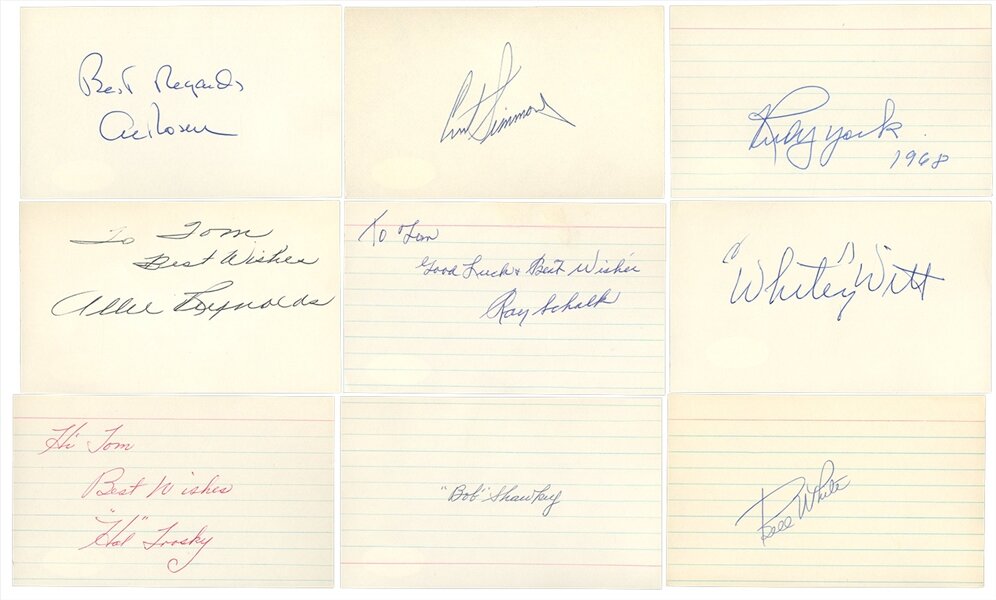 Best Regards
Al Rosen
Curt Simmons
Rudy York
1968
To Tom
Best Wishes
Allie Reynolds
To Tom
Good Luck & Best Wishes
Ray Schalk
"Whitey" Witt
Hi Tom
Best Wishes
"Hal" Trosky
"Bob" Shawkey
Bill White